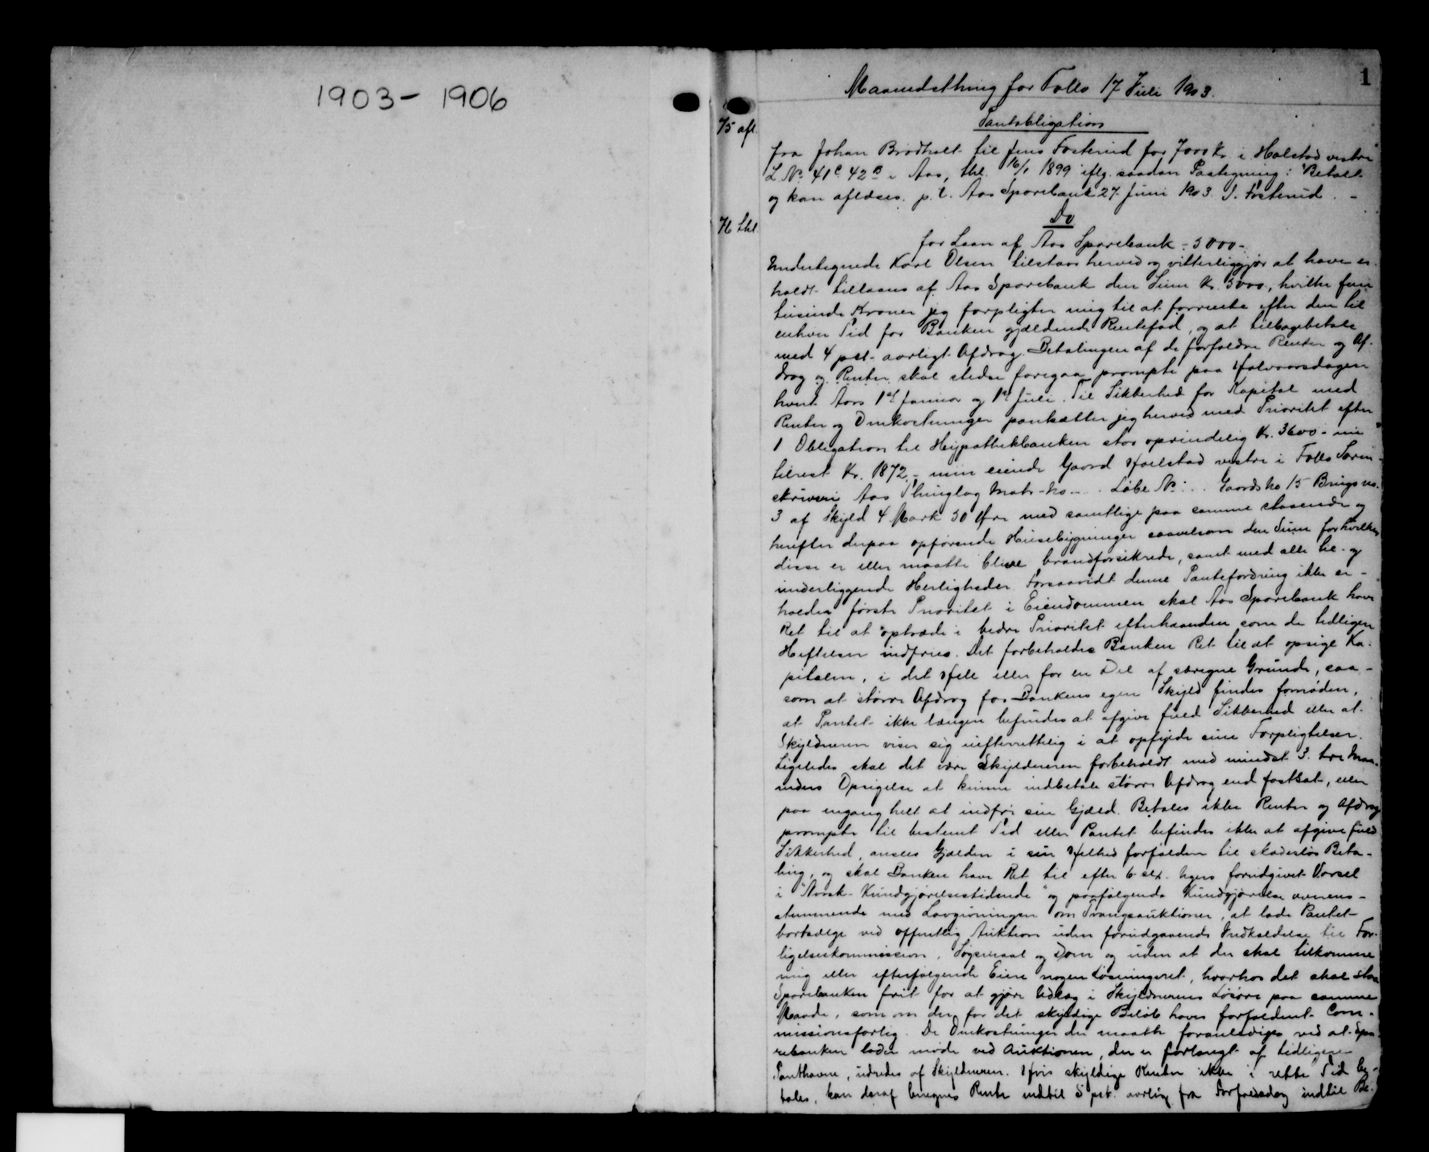 1903 - 1906
1
Maanedsthing for Follo 17 Juli 1903.
75 afl.
Pantobligation
fra Johan Brodholt til Jens Fosterud for 7000 Kr. i Holstad vestre
L.No. 41c 42a i Aas, thl. 16/1 1899 iflg. saadan Paategning: "Betalt
og kan aflæses. p.t. Aas Sparebank 27. Juni 1903. J. Fosterud. -
76 thl
Do
for Laan af Aas Sparebank - 5000 -
Undertegnede Karl Olsen tilstaar herved og vitterliggjør at have er-
holdt tillaans af Aas Sparebank den Sum Kr. 5000, hvilke fem
tusinde Kroner jeg forpligter mig til at forrente efter den til
enhver Tid for Banken gjældende Rentefod, og at tilbagebetale
med 4 pct. aarligt Afdrag. Betalingen af de forfaldne Renter og Af-
drag og Renter skal stedse foregaa prompte paa Halvaarsdagen
hvert Aars 1ste Januar og 1ste Juli. Til Sikkerhed for Kapital med
Renter og Omkostninger pantsætter jeg herved med Prioritet efter
1 Obligation til Hypothekbanken stor oprindelig Kr. 3600 - nu
tilrest Kr. 1872 - min eiende Gaard Holstad vestre i Follo Soren-
skriveri Aas Thinglag Matr. No - . Løbe No: . . Gaards No 15 Brugs no.
3 af Skyld 4 Mark 50 Øre med samtlige paa samme staaende og
herefter derpaa opførende Husebygninger saavelsom den Sum for hvilken
disse er eller maatte blive brandforsikrede, samt med alle til- og
underliggende Herligheder. Forsaavidt denne Pantefordring ikke er-
holder første Prioritet i Eiendommen skal Aas Sparebank have
Ret til at optræde i bedre Prioritet efterhaanden som de tidligere
Heftelser indfries. Det forbeholdes Banken Ret til at opsige Ka-
pitalen, i det Hele eller for en Del af særegne Grunde, saa-
som at større Afdrag for Bankens egen Skyld findes fornøden,
at Pantet ikke længer befindes at afgive fuld Sikkerhed eller at
Skyldneren viser sig uefterrettelig i at opfylde sine Forpligtelser.
Ligeledes skal det være Skyldneren forbeholdt med mindst 3 tre Maa-
neders Opsigelse at kunne indbetale større Afdrag end fastsat, eller
paa engang helt at indfri sin Gjæld. Betales ikke Renter og Afdrag
prompte til bestemt Tid eller Pantet befindes ikke at afgive fuld
Sikkerhed, ansees Gjælden i sin Helhed forfalden til skadesløs Beta-
ling, og skal Banken have Ret til efter 6 sex Ugers forudgivet Varsel
i "Norsk Kundgjørelsestidende" og paafølgende Kundgjørelse overens-
stemmende med Lovgivningen om Tvangsauktioner, at lade Pantet
bortsælge ved offentlig Auktion uden forudgaaende Indkaldelse til For-
ligelseskommission, Søgsmaal og Dom og uden at der skal tilkomme
mig eller efterfølgende Eiere nogen Løsningsret, hvorhos det skal staa
Sparebanken frit for at gjøre Udlæg i Skyldnerens Løsøre paa samme
Maade, som om der for det skyldige Beløb haves forfaldent Com-
missionsforlig. De Omkostninger der maatte foranlediges ved at Spa-
rebanken lader møde ved Auktionen, der er forlangt af tidligere
Panthavere, udredes af Skyldneren. Hvis skyldige Renter ikke i rette Tid be-
tales, kan deraf beregnes Rente indtil 5 pct. aarlig fra Forfaldsdag indtil Be-